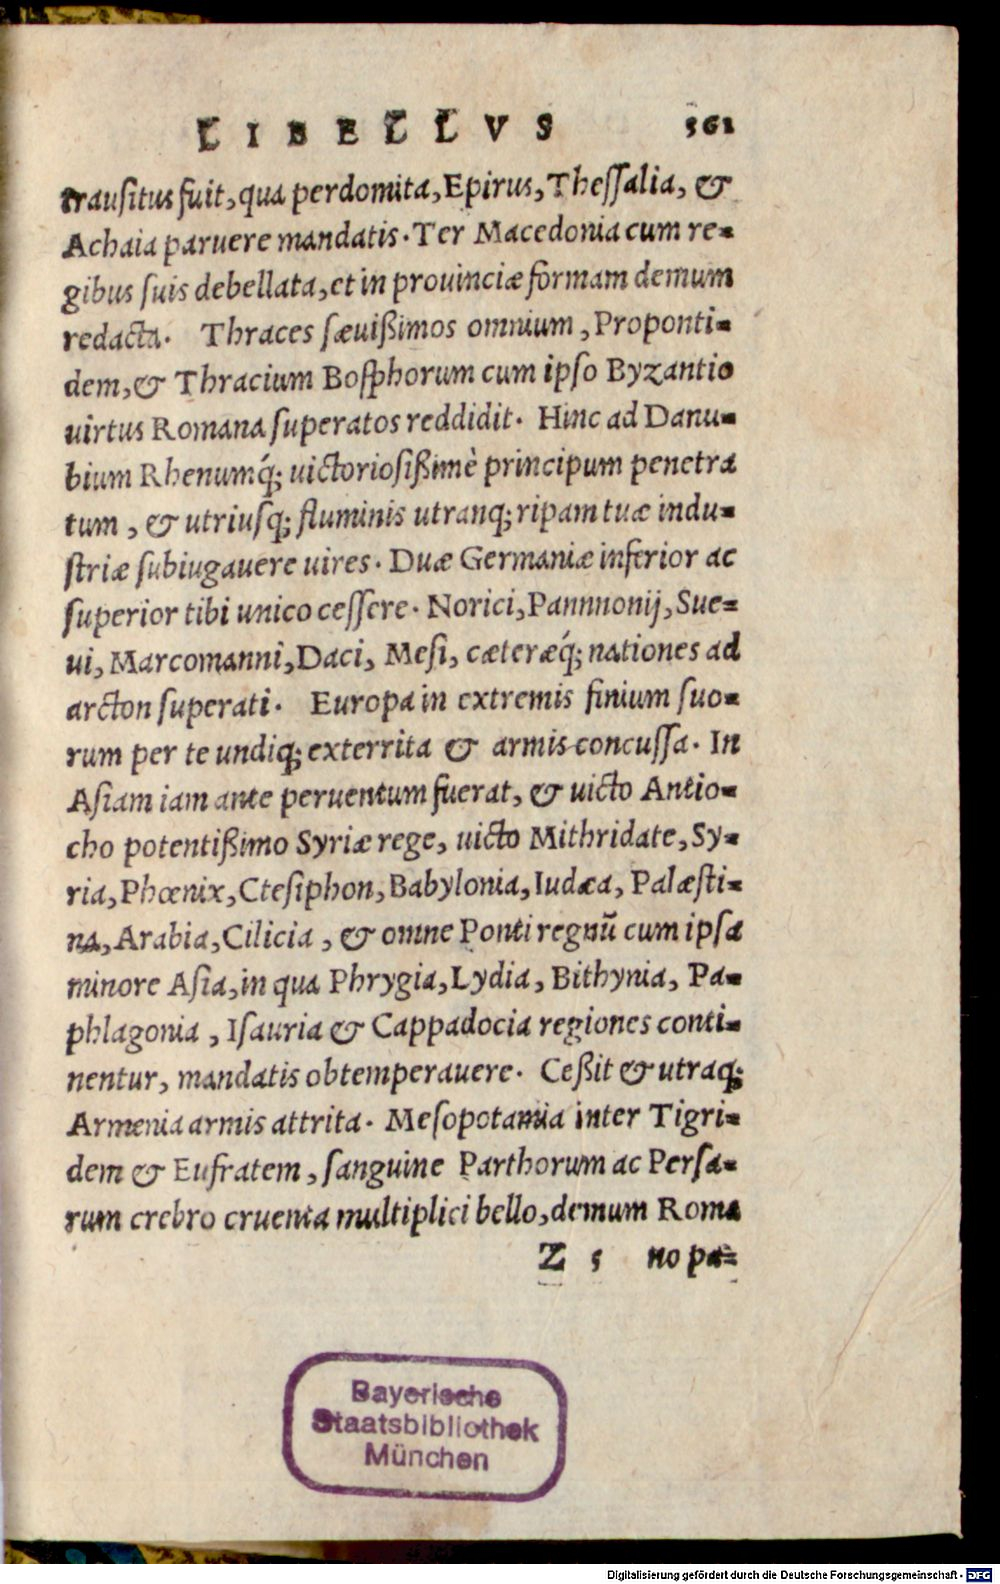 LIBELLVS 361
trausitus fuit, qua perdomita, Epirus, Thessalia, &
Achaia paruere mandatis. Ter Macedonia cum re=
gibus suis debellata, et in prouinciæ formam demum
redacta. Thraces sæuißimos omnium, Proponti=
dem, & Thracium Bosphorum cum ipso Byzantio
uirtus Romana superatos reddidit. Hinc ad Danu=
bium Rhenumq́; uictoriosißimè principum penetra
tum, & utriusq; fluminis utranq; ripam tuæ indu=
striæ subiugauere uires. Duæ Germaniæ inferior ac
superior tibi unico cessere. Norici, Pannnonij, Sue=
ui, Marcomanni, Daci, Mesi, cæteræq́; nationes ad
arcton superati. Europa in extremis finium suo=
rum per te undiq; exterrita & armis concussa. In
Asiam iam ante peruentum fuerat, & uicto Antio=
cho potentißimo Syriæ rege, uicto Mithridate, Sy=
ria, Phœnix, Ctesiphon, Babylonia, Iudæa, Palæsti=
na, Arabia, Cilicia, & omne Ponti regnū cum ipsa
minore Asia, in qua Phrygia, Lydia, Bithynia, Pa=
phlagonia, Isauria & Cappadocia regiones conti=
nentur, mandatis obtemperauere. Ceßit & utraq;
Armenia armis attrita. Mesopotamia inter Tigri=
dem & Eufratem, sanguine Parthorum ac Persa=
rum crebro cruenta multiplici bello, demum Roma
Z 5 no pa=
Bayerische
Staatsbibliothek
München
Digitalisierung gefördert durch die Deutsche Forschungsgemeinschaft - DFG